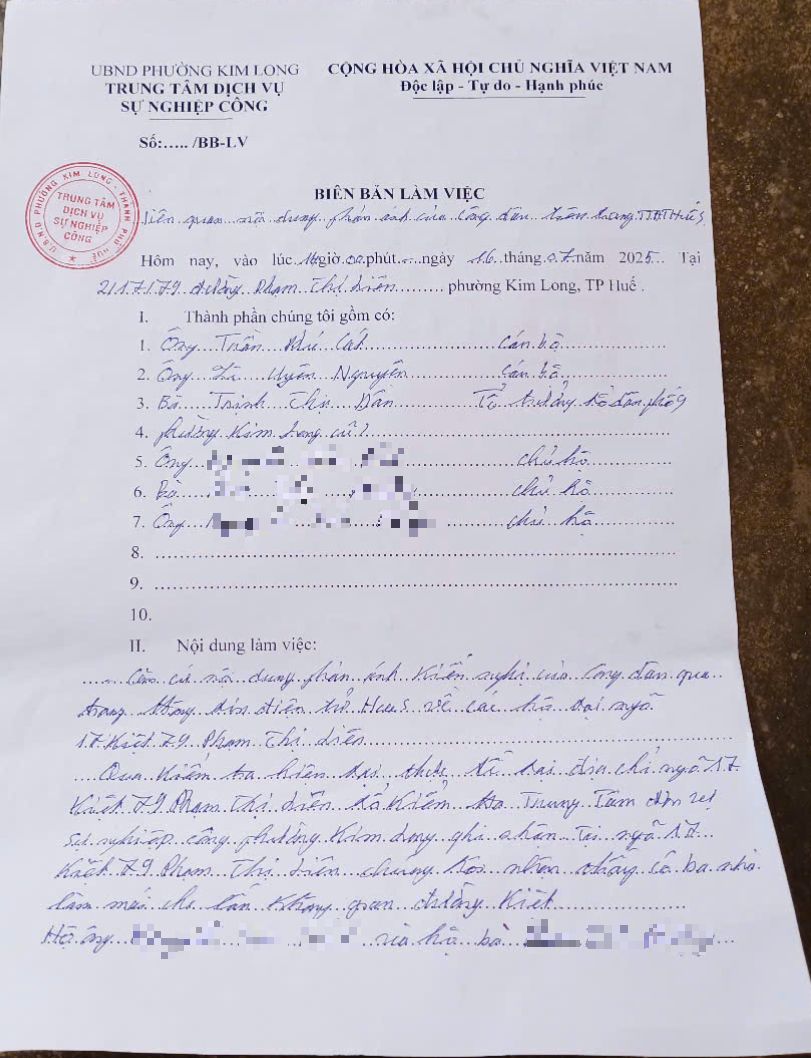 UBND PHƯỜNG KIM LONG
TRUNG TÂM DỊCH VỤ
SỰ NGHIỆP CÔNG
Số:..... /BB-LV
CỘNG HÒA XÃ HỘI CHỦ NGHĨA VIỆT NAM
Độc lập - Tự do - Hạnh phúc
U.B.N.D PHƯỜNG KIM LONG - THÀNH PHỐ HUẾ
TRUNG TÂM
DỊCH VỤ
SỰ NGHIỆP
CÔNG
BIÊN BẢN LÀM VIỆC
Liên quan nội dung phản ánh của công dân trên trang
Hôm nay, vào lúc 14 giờ 00 phút ngày 16 tháng 07 năm 2025 Tại
đường Phạm Thị Liên phường Kim Long, TP Huế.
I. Thành phần chúng tôi gồm có:
1. Ông Trần cán bộ
2. Ông Nguyên cán bộ
3. Bà Trịnh Thu Dân Tổ trưởng tổ dân phố 9
4. phường Kim Long cũ
5. Ông chủ hộ
6. Bà chủ hộ
7. Ông chủ hộ
8.
9.
10.
II. Nội dung làm việc:
Căn cứ nội dung phản ánh kiến nghị của công dân qua
trang thông tin điện tử HueS về các hộ tại ngõ
17 Kiệt 79 Phạm Thị Liên
Qua kiểm tra hiện tại thực tế tại địa chỉ ngõ 17
Kiệt 79 Phạm Thị Liên tổ kiểm tra Trung Tâm dịch vụ
sự nghiệp công phường Kim Long ghi nhận Tại ngõ 17
Kiệt 79 Phạm Thị Liên chúng tôi nhận thấy có ba nhà
làm mái che lấn không gian đường Kiệt
Hộ ông và hộ bà